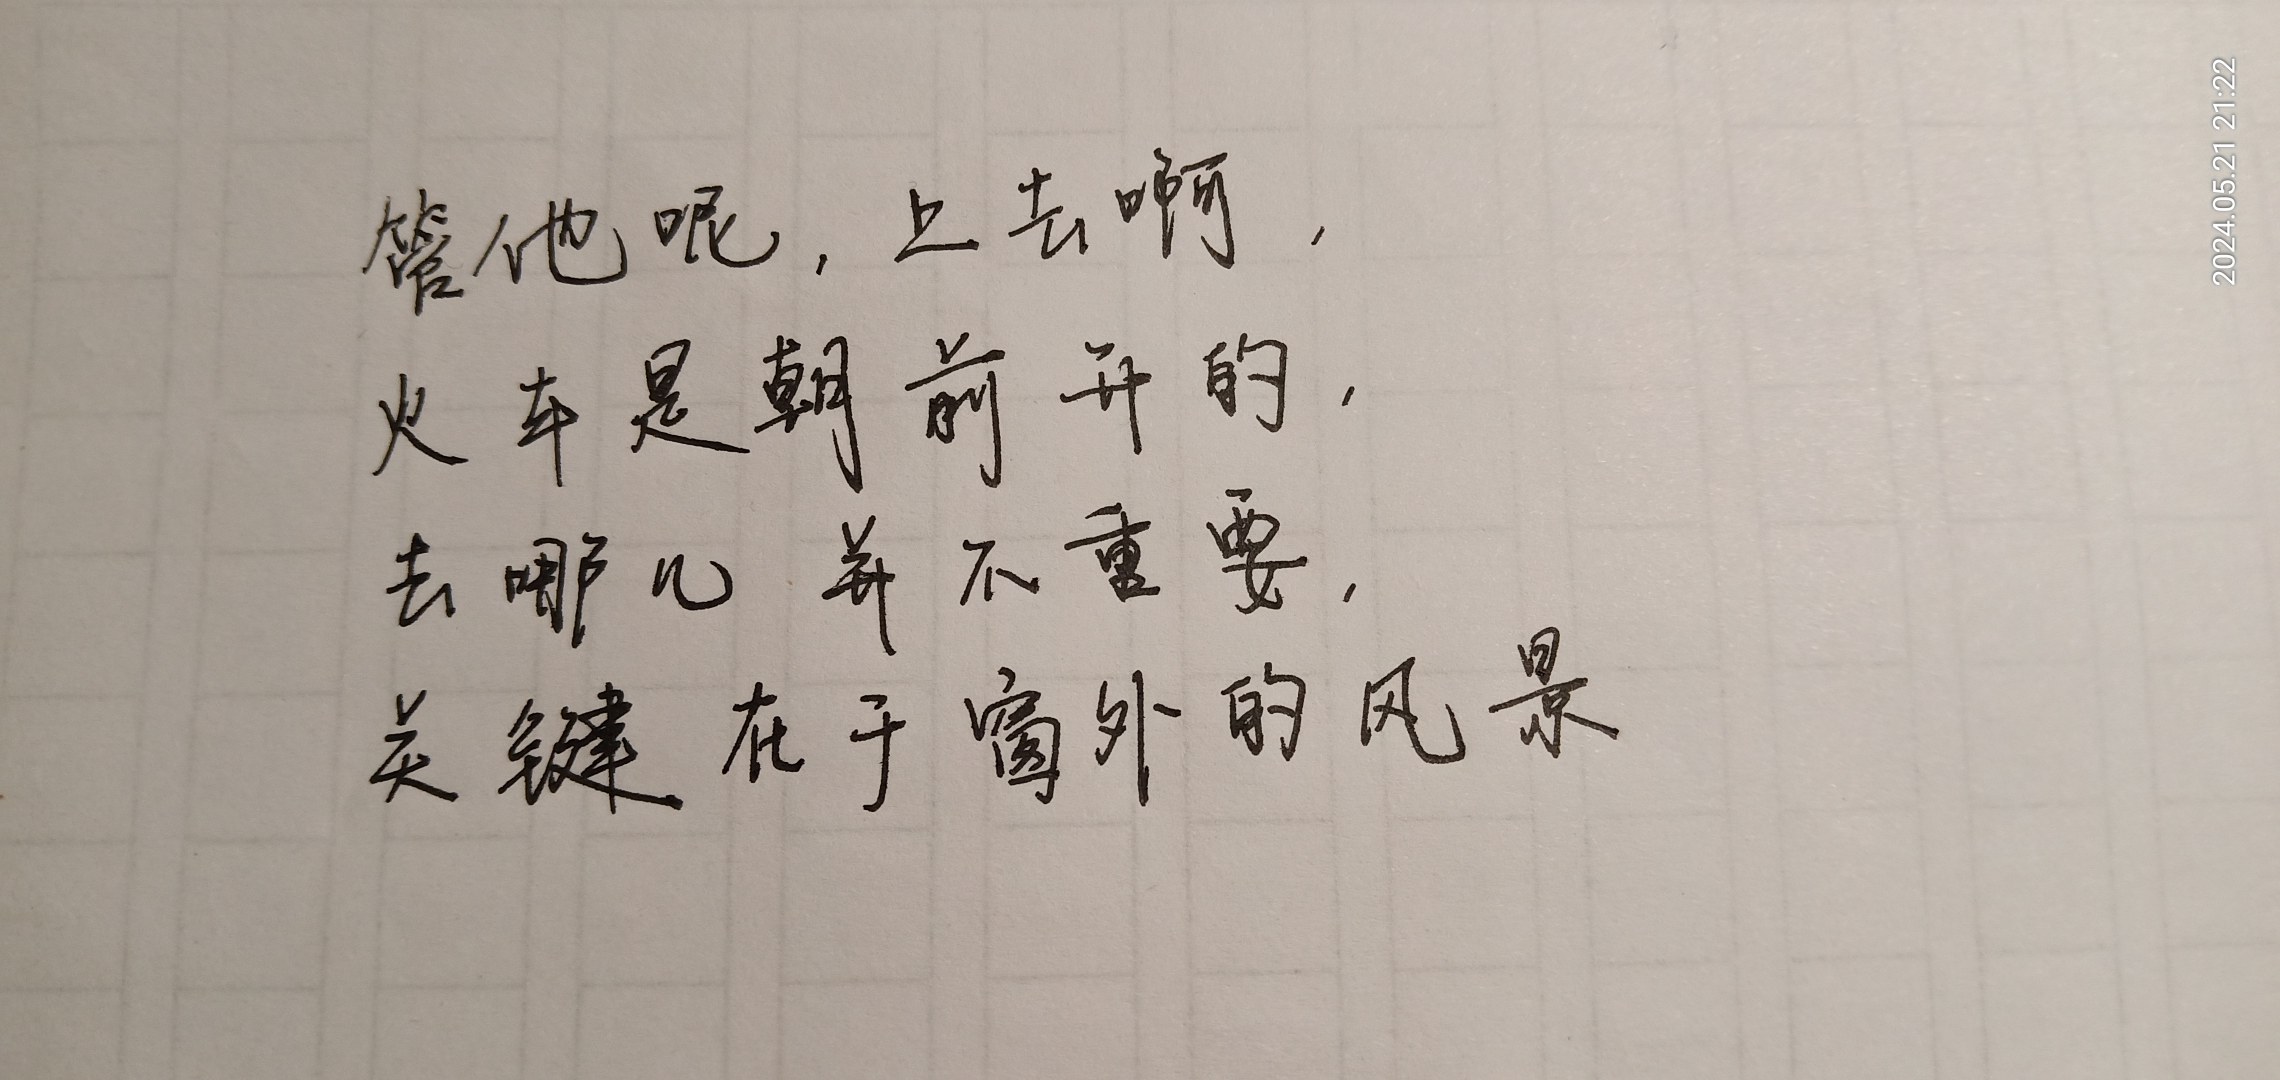 管他呢，上去啊，
火车是朝前开的，
去哪儿并不重要，
关键在于窗外的风景
2024.05.21 21:22